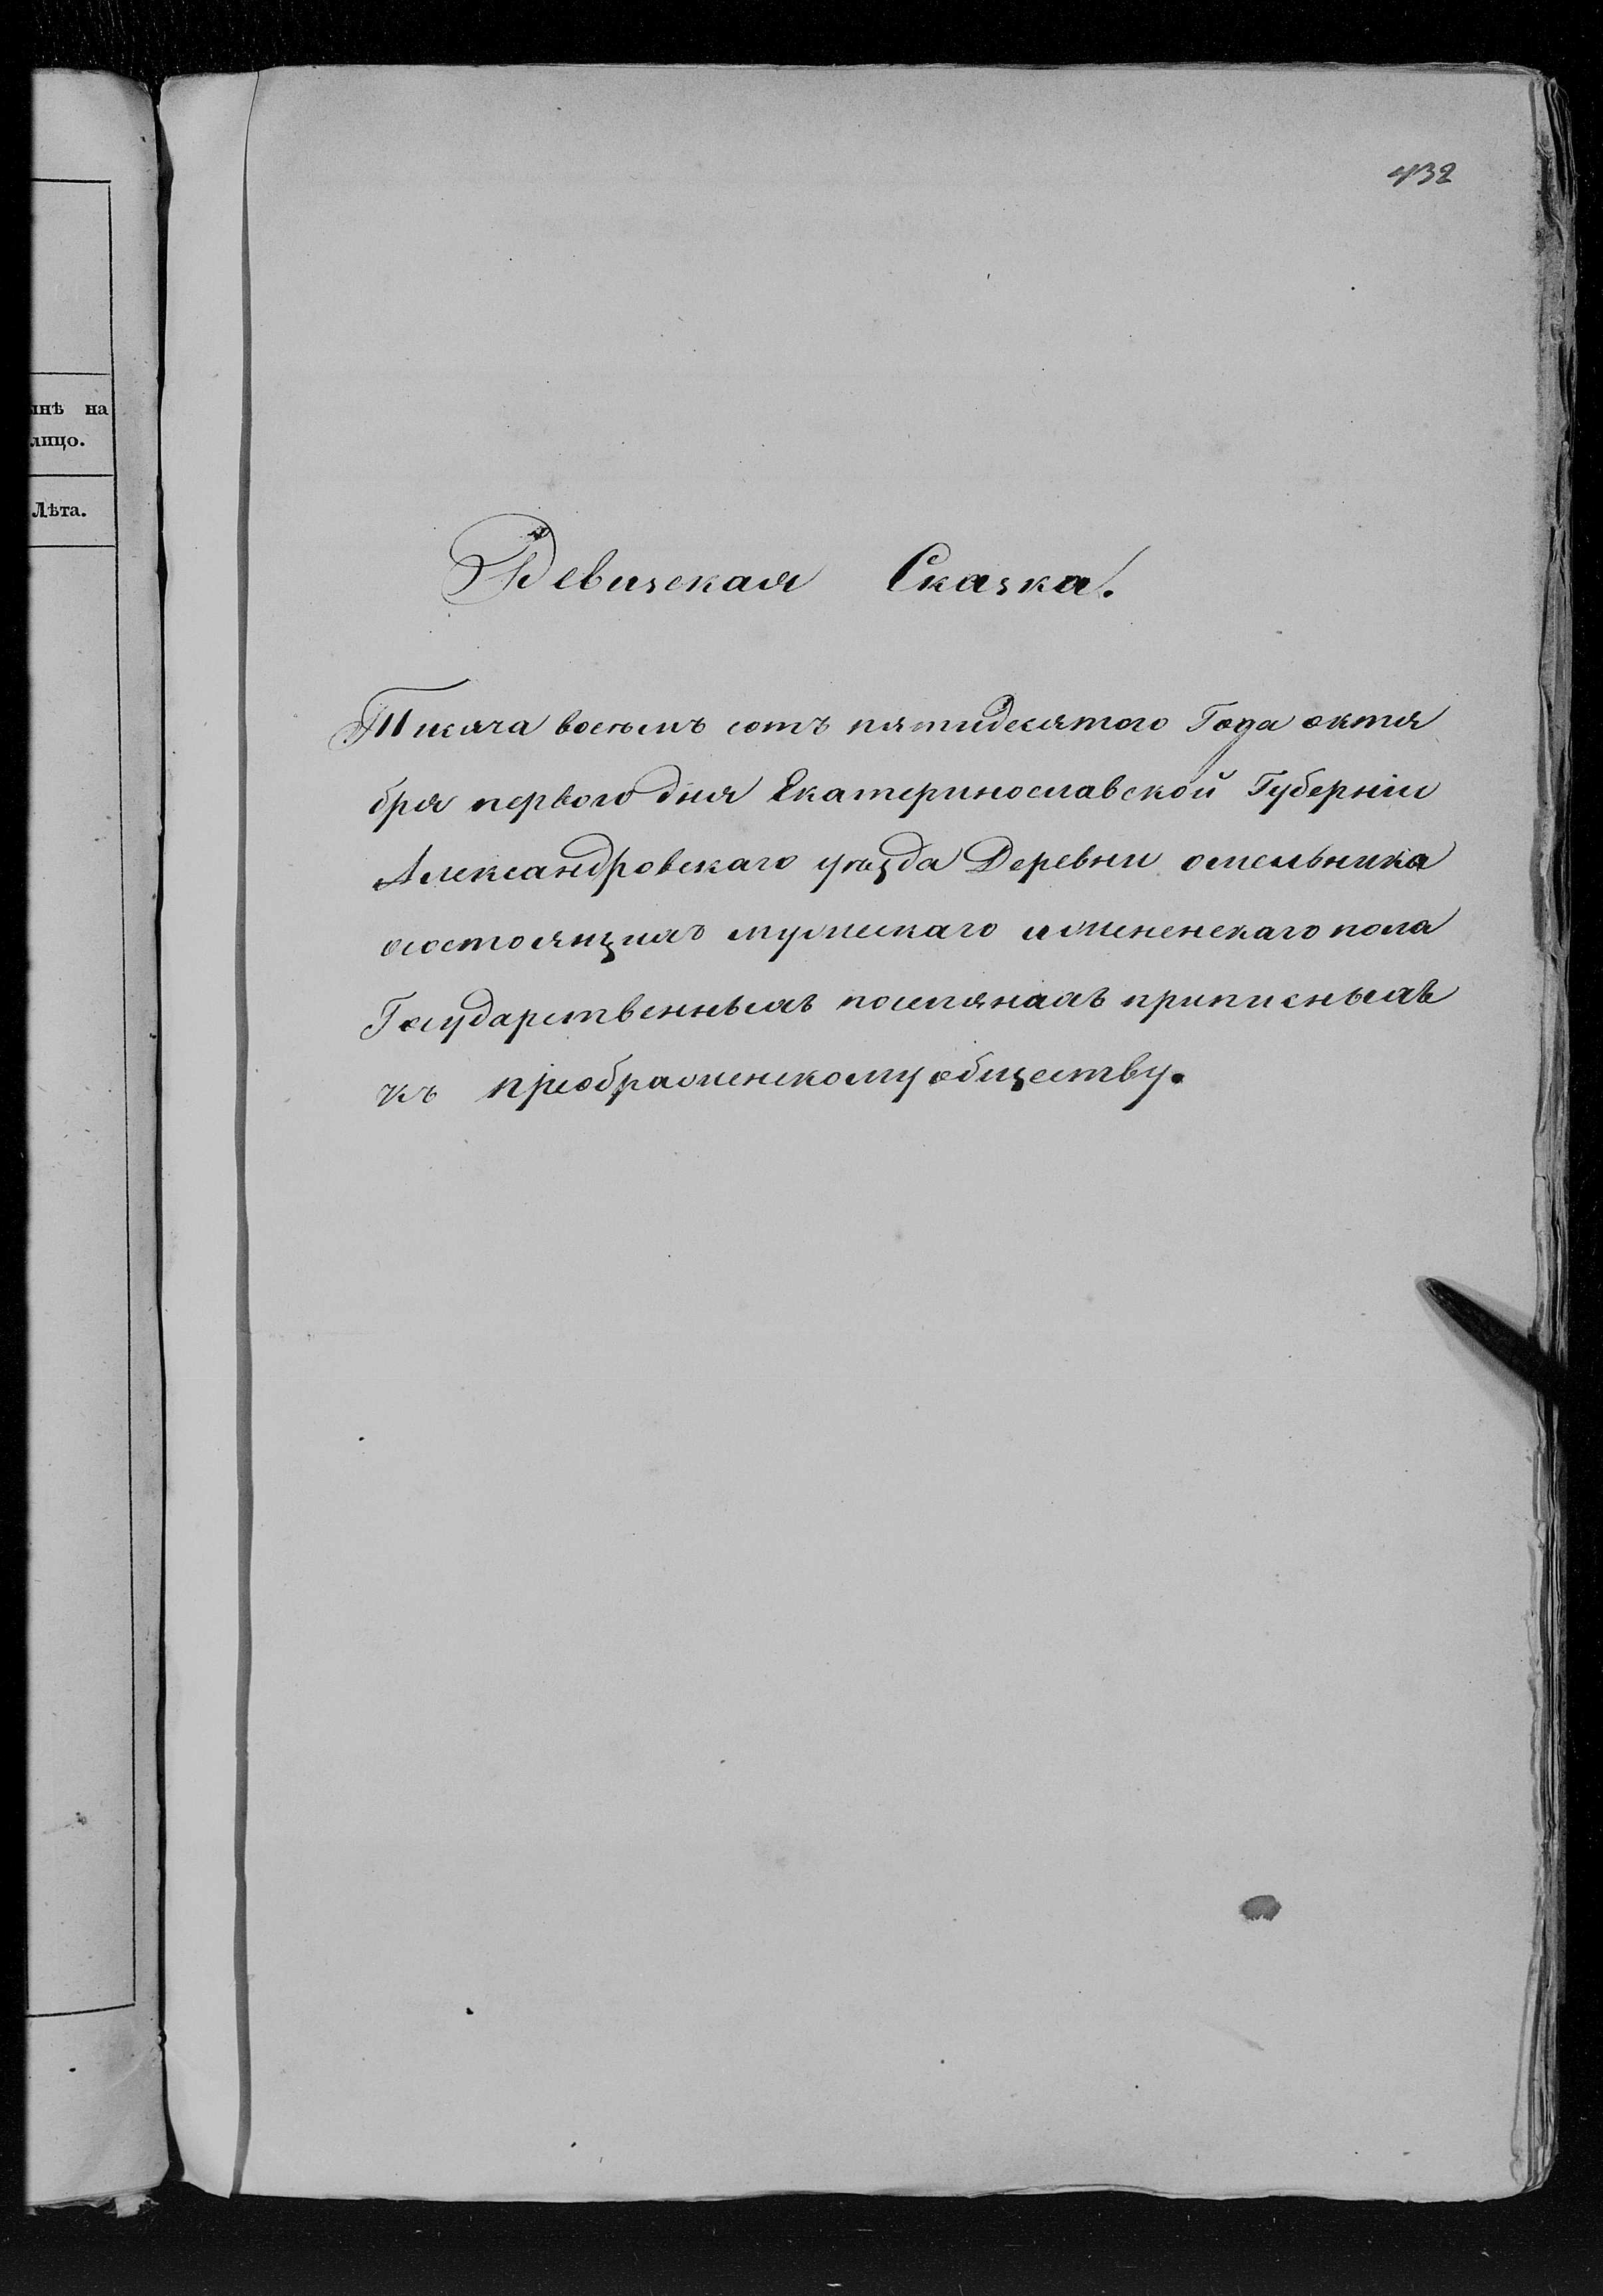 432
лицо.
Лѣта.
Ревизская Сказка.
Тисяча восемъ сотъ пятидесятого Года октя
бря первого дня Екатеринославской Губерніи
Александровскаго уезда Деревни омельника
состоящихъ мужескаго и женскаго пола
Государственныхъ поселянахъ приписныхъ
къ преображенскому обществу.